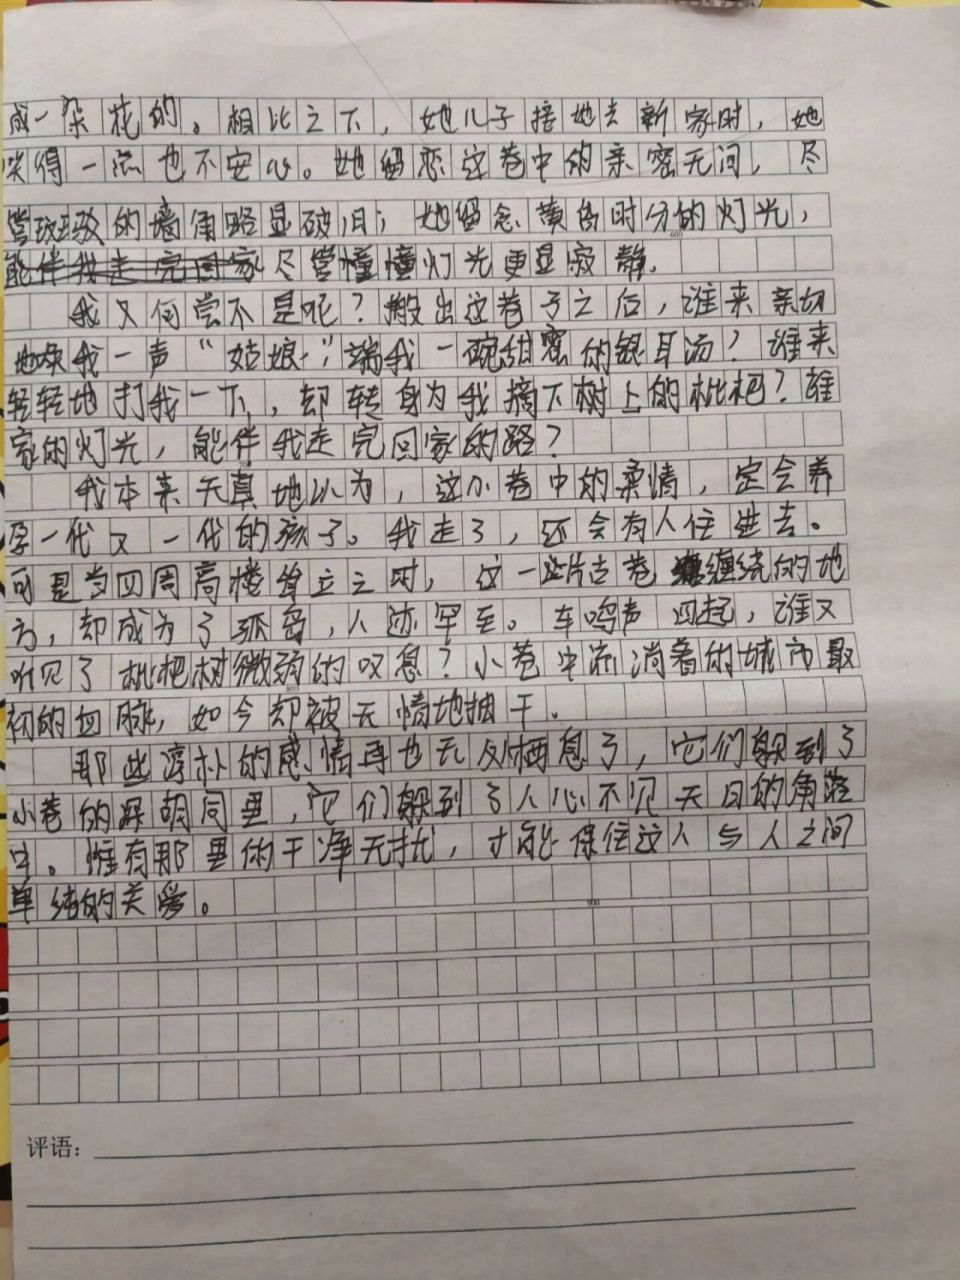 成一朵花的。相比之下，她儿子接她去新家时，她
笑得一点也不安心。她留恋这巷中的亲密无间，尽
管斑驳的墙角略显破旧；她留念黄昏时分的灯光，
600
尽管憧憧灯光更显寂静。
我又何尝不是呢？搬出这巷子之后，谁来亲切
地唤我一声“姑娘”；端我一碗甜蜜的银耳汤？谁来
轻轻地打我一下，却转身为我摘下树上的枇杷？谁
家的灯光，能伴我走完回家的路？
700
我本来天真地以为，这小巷中的柔情，定会养
孕一代又一代的孩子。我走了，还会有人住进去。
可是当四周高楼耸立之时，这一些片古巷缠绕的地
方，却成为了孤岛，人迹罕至。车鸣声四起，谁又
听见了枇杷树微弱的叹息？小巷中流淌着的城市最
800
初的血脉，如今却被无情地抽干。
那些淳朴的感情再也无处栖息了，它们躲到了
小巷的深胡同里，它们躲到了人心不见天日的角落
里。惟有那里的干净无扰，才能保住这人与人之间
单纯的关爱。
900
评语：